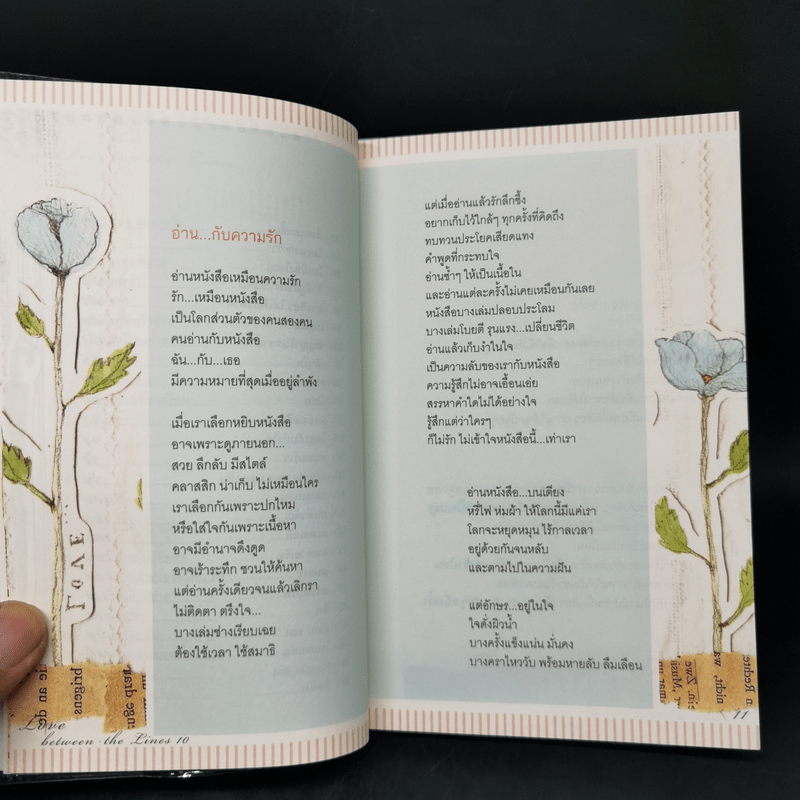 อ่าน...กับความรัก
อ่านหนังสือเหมือนความรัก
รัก...เหมือนหนังสือ
เป็นโลกส่วนตัวของคนสองคน
คนอ่านกับหนังสือ
ฉัน...กับ...เธอ
มีความหมายที่สุดเมื่ออยู่ลำพัง
เมื่อเราเลือกหยิบหนังสือ
อาจเพราะดูภายนอก...
สวย ลึกลับ มีสไตล์
คลาสสิก น่าเก็บ ไม่เหมือนใคร
เราเลือกกันเพราะปกไหม
หรือใส่ใจกันเพราะเนื้อหา
อาจมีอำนาจดึงดูด
อาจเร้าระทึก ชวนให้ค้นหา
แต่อ่านครั้งเดียวจนแล้วเลิกรา
ไม่ติดตา ตรึงใจ...
บางเล่มช่างเรียบเฉย
ต้องใช้เวลา ใช้สมาธิ
LOVE
Love
between the Lines 10
แต่เมื่ออ่านแล้วรักลึกซึ้ง
อยากเก็บไว้ใกล้ๆ ทุกครั้งที่คิดถึง
ทบทวนประโยคเสียดแทง
คำพูดที่กระทบใจ
อ่านซ้ำๆ ให้เป็นเนื้อใน
และอ่านแต่ละครั้งไม่เคยเหมือนกันเลย
หนังสือบางเล่มปลอบประโลม
บางเล่มโบยตี รุนแรง...เปลี่ยนชีวิต
อ่านแล้วเก็บงำในใจ
เป็นความลับของเรากับหนังสือ
ความรู้สึกไม่อาจเอื้อนเอ่ย
สรรหาคำใดไม่ได้อย่างใจ
รู้สึกแต่ว่าใครๆ
ก็ไม่รัก ไม่เข้าใจหนังสือนี้...เท่าเรา
อ่านหนังสือ...บนเตียง
หรี่ไฟ ห่มผ้า ให้โลกนี้มีแค่เรา
โลกจะหยุดหมุน ไร้กาลเวลา
อยู่ด้วยกันจนหลับ
และตามไปในความฝัน
แต่อักษร...อยู่ในใจ
ใจดั่งผิวน้ำ
บางครั้งแข็งแน่น มั่นคง
บางคราไหววับ พร้อมหายลับ ลืมเลือน
11